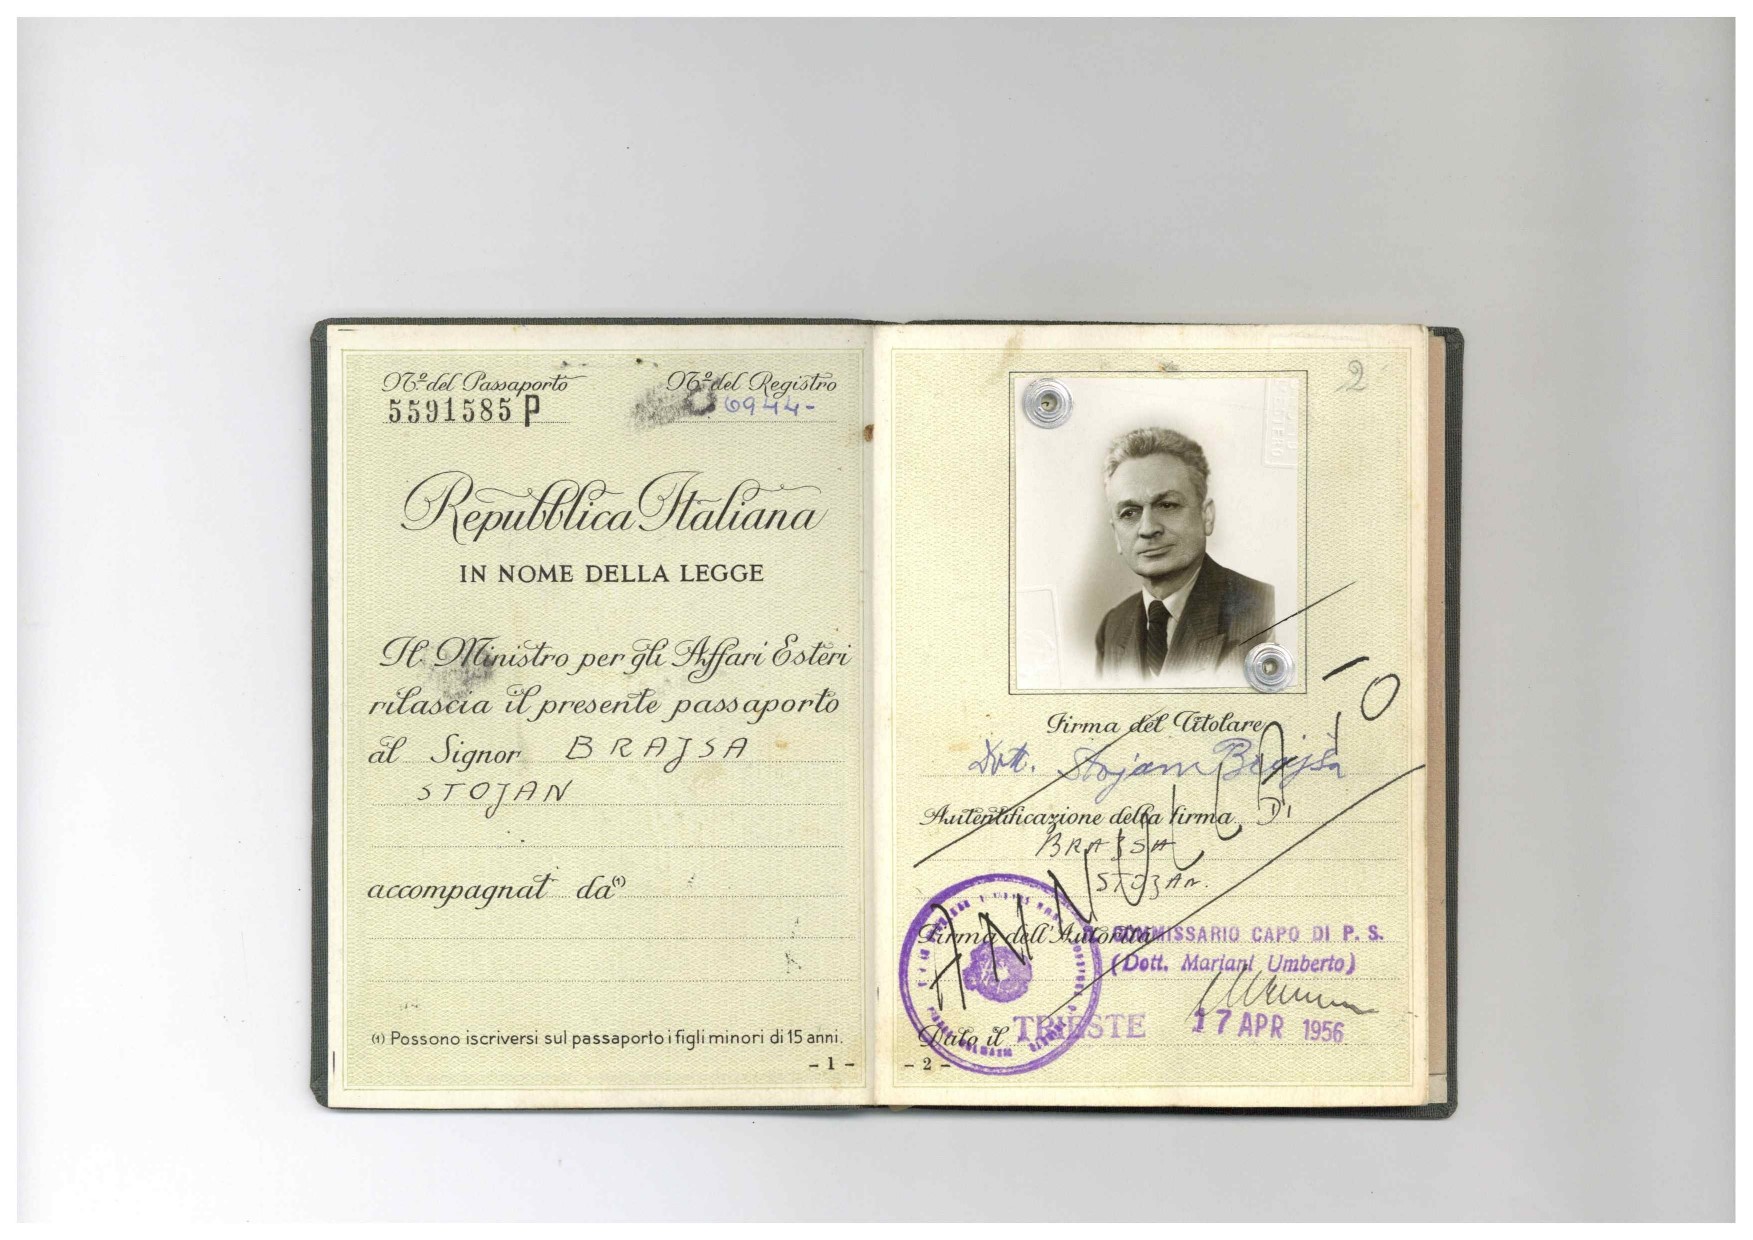 Nº del Passaporto
5591585 P
Nº del Registro
6944-
Repubblica Italiana
IN NOME DELLA LEGGE
Il Ministro per gli Affari Esteri
rilascia il presente passaporto
al Signor BRAJSA
STOJAN
accompagnat da (1)
(1) Possono iscriversi sul passaporto i figli minori di 15 anni.
- 1 -
2
Firma del Titolare
Dott. Stojan Brajša
Autentificazione della firma DI
BRAJSA
STOJAN.
ANNULLATO
Firma dell'Autorità COMMISSARIO CAPO DI P. S.
(Dott. Mariani Umberto)
Dato il TRIESTE 17 APR 1956
- 2 -